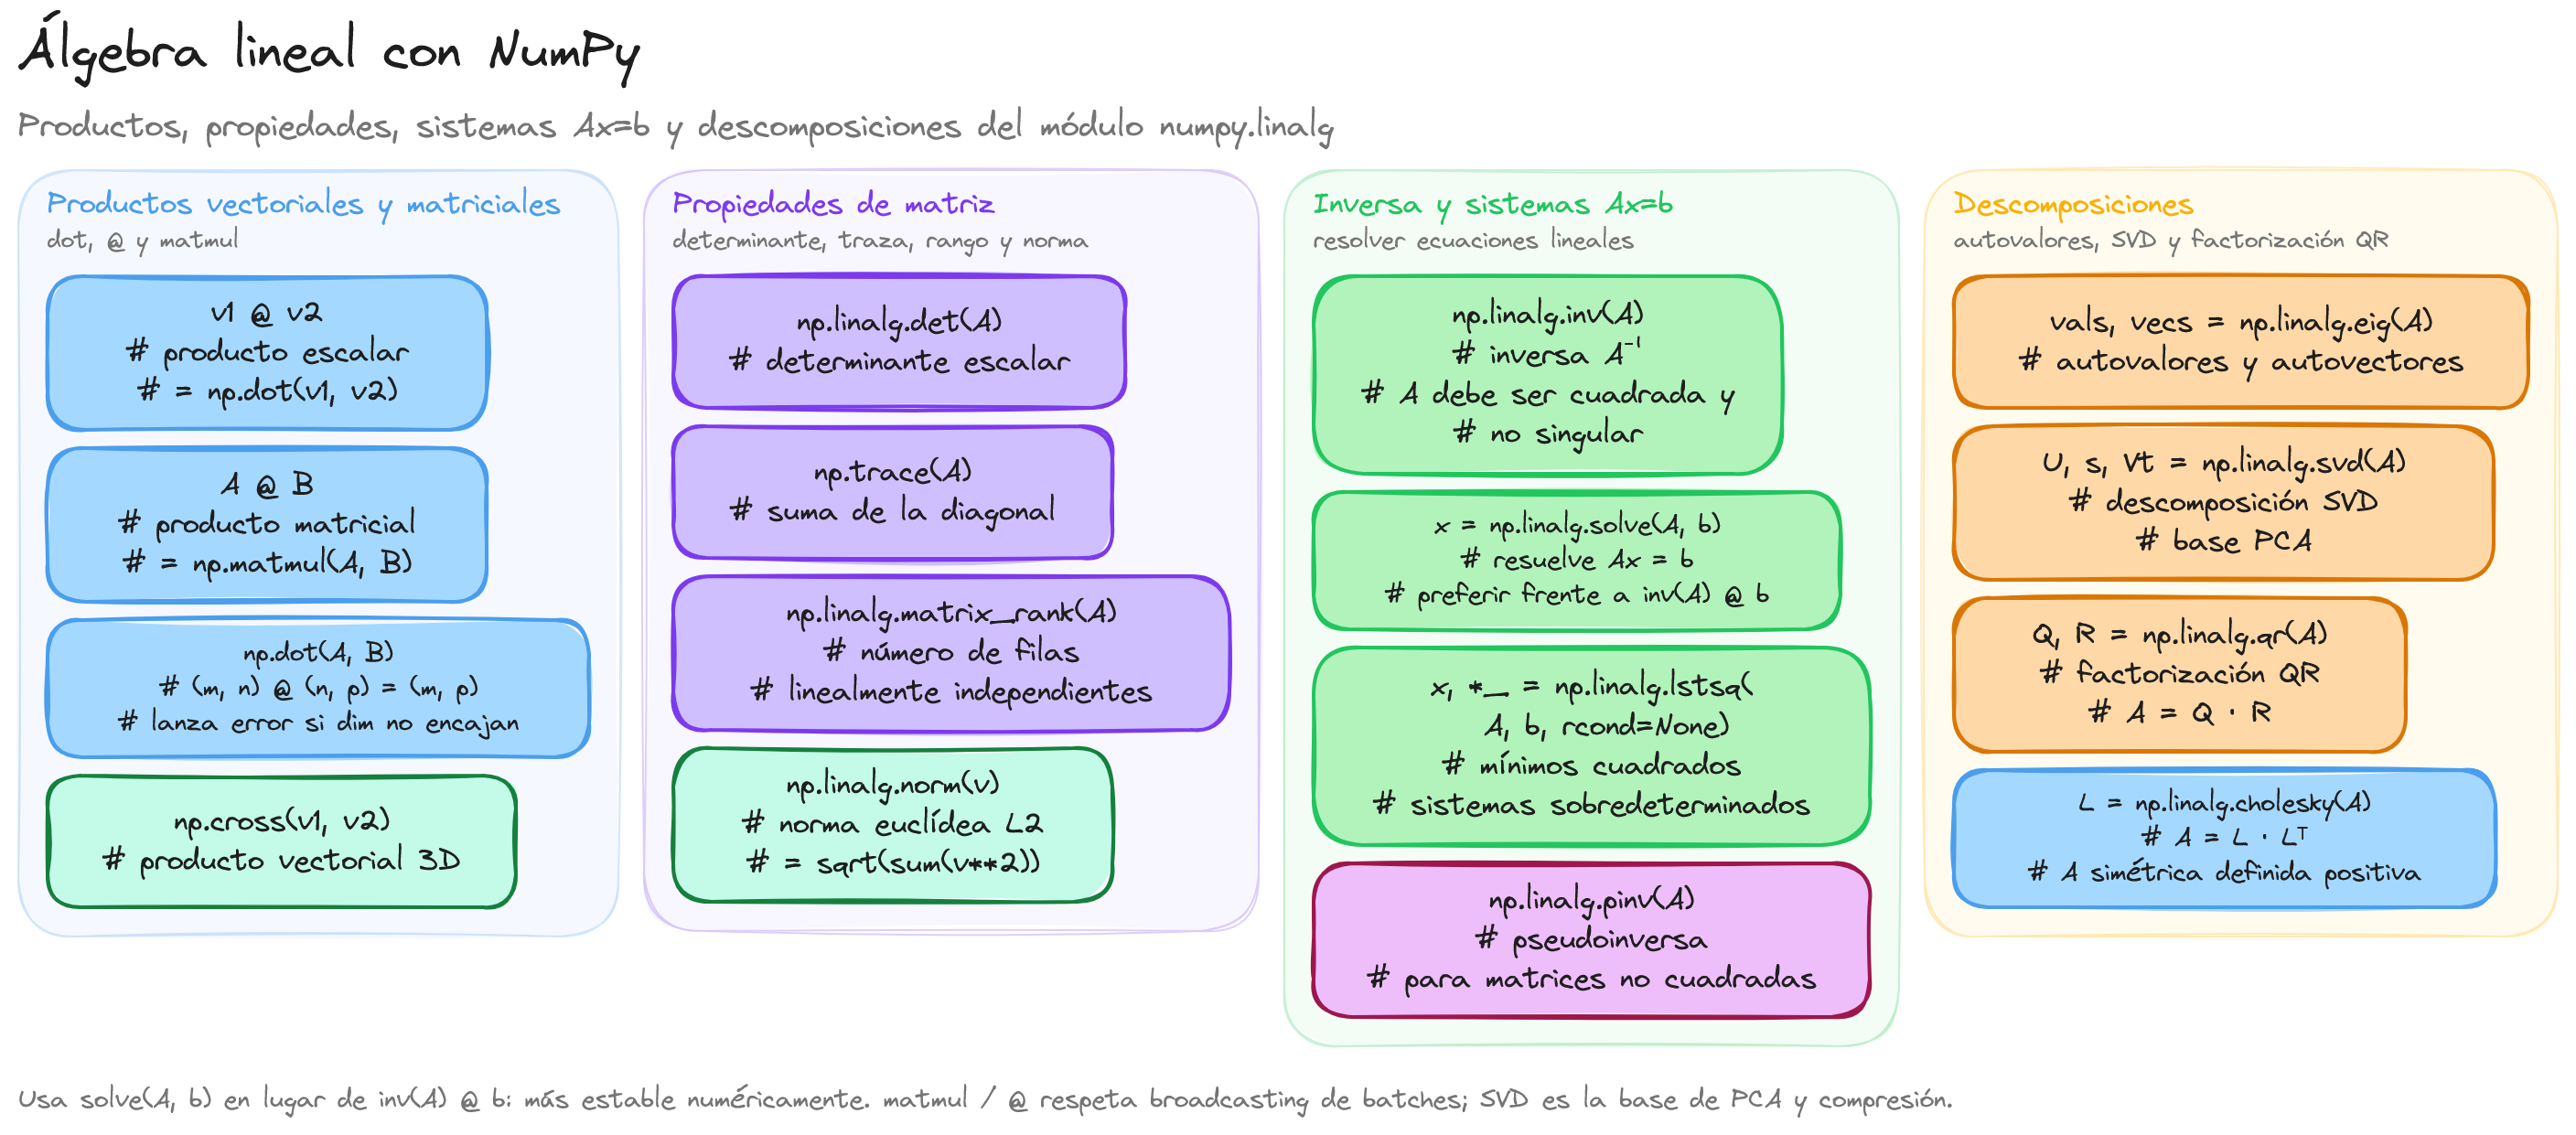 Álgebra lineal con NumPy
Productos, propiedades, sistemas Ax=b y descomposiciones del módulo numpy.linalg
Productos vectoriales y matriciales
dot, @ y matmul
v1 @ v2
# producto escalar
# = np.dot(v1, v2)
A @ B
# producto matricial
# = np.matmul(A, B)
np.dot(A, B)
# (m, n) @ (n, p) = (m, p)
# lanza error si dim no encajan
np.cross(v1, v2)
# producto vectorial 3D
Propiedades de matriz
determinante, traza, rango y norma
np.linalg.det(A)
# determinante escalar
np.trace(A)
# suma de la diagonal
np.linalg.matrix_rank(A)
# número de filas
# linealmente independientes
np.linalg.norm(v)
# norma euclídea L2
# = sqrt(sum(v**2))
Inversa y sistemas Ax=b
resolver ecuaciones lineales
np.linalg.inv(A)
# inversa A⁻¹
# A debe ser cuadrada y
# no singular
x = np.linalg.solve(A, b)
# resuelve Ax = b
# preferir frente a inv(A) @ b
x, *_ = np.linalg.lstsq(
A, b, rcond=None)
# mínimos cuadrados
# sistemas sobredeterminados
np.linalg.pinv(A)
# pseudoinversa
# para matrices no cuadradas
Descomposiciones
autovalores, SVD y factorización QR
vals, vecs = np.linalg.eig(A)
# autovalores y autovectores
U, s, Vt = np.linalg.svd(A)
# descomposición SVD
# base PCA
Q, R = np.linalg.qr(A)
# factorización QR
# A = Q · R
L = np.linalg.cholesky(A)
# A = L · Lᵀ
# A simétrica definida positiva
Usa solve(A, b) en lugar de inv(A) @ b: más estable numéricamente. matmul / @ respeta broadcasting de batches; SVD es la base de PCA y compresión.